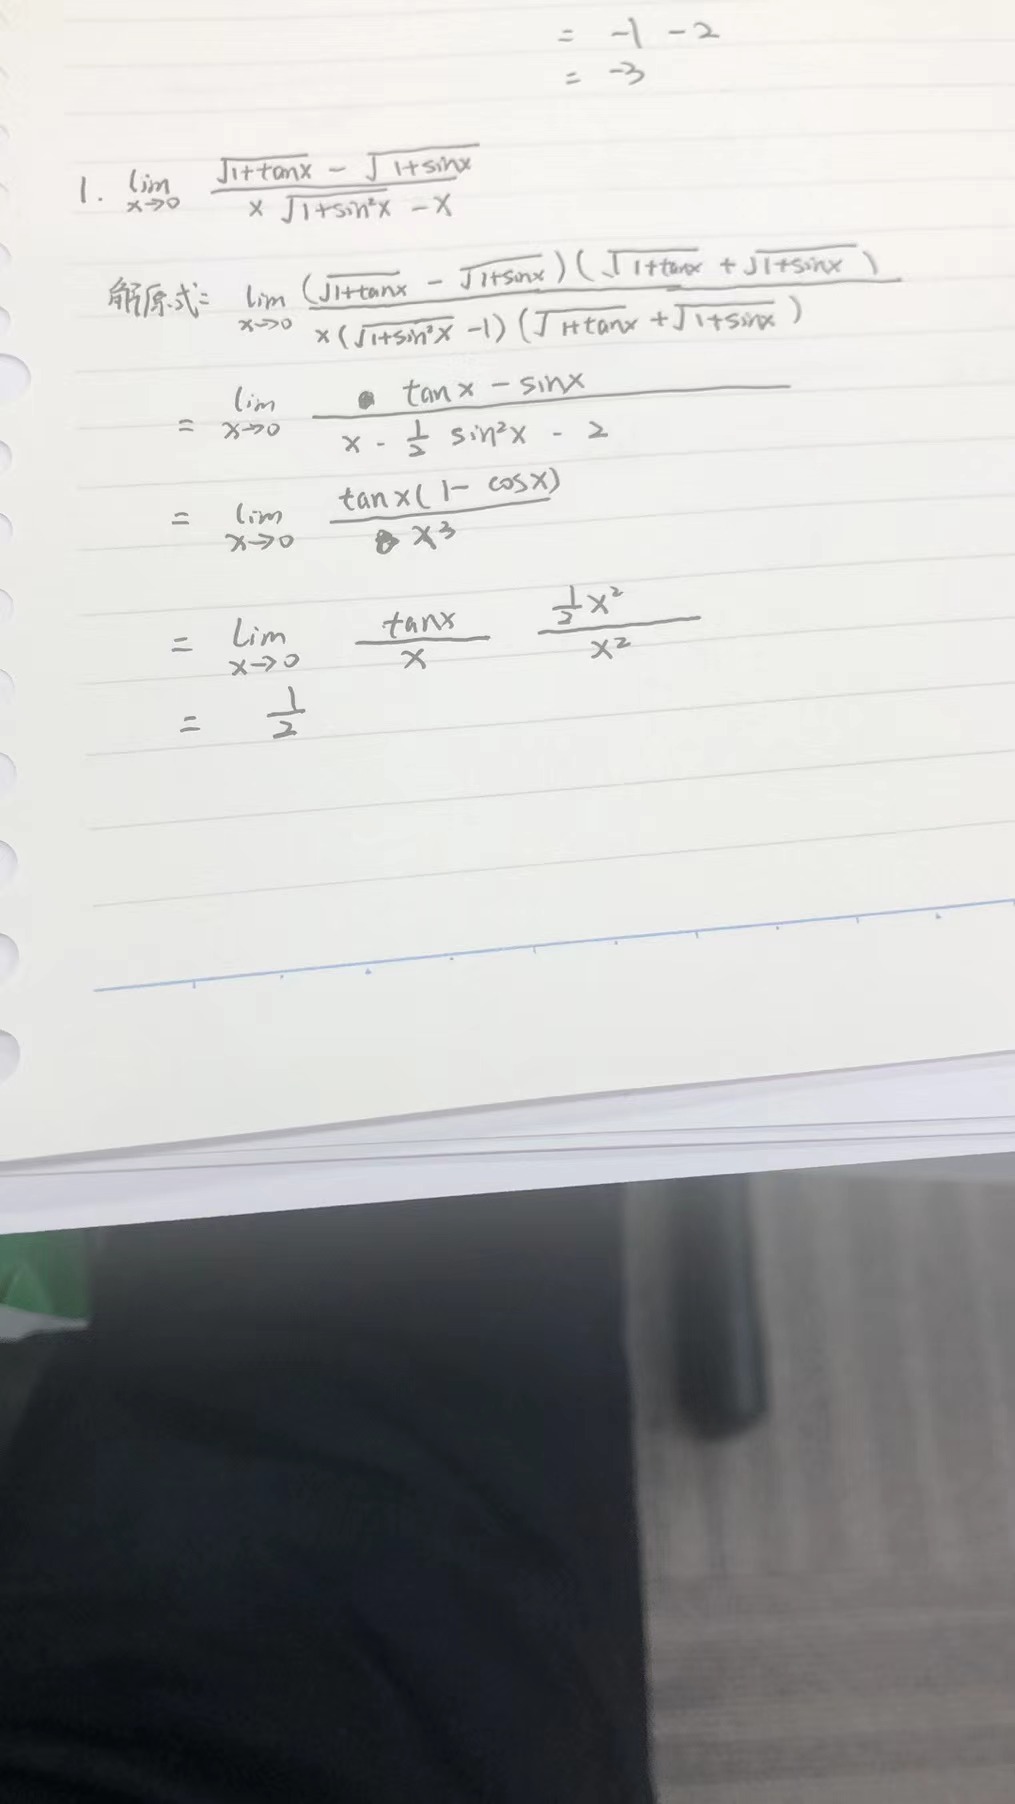 = -1 -2
= -3
1. lim x→0 (√(1+tanx) - √(1+sinx)) / (x √(1+sin²x) - x)
解原式= lim x→0 (√(1+tanx) - √(1+sinx)) (√(1+tanx) + √(1+sinx)) / (x (√(1+sin²x) -1) (√(1+tanx) + √(1+sinx)))
= lim x→0 (tanx - sinx) / (x - 1/2 sin²x - 2)
= lim x→0 tanx (1- cosx) / x³
= lim x→0 tanx / x  1/2 x² / x²
= 1/2